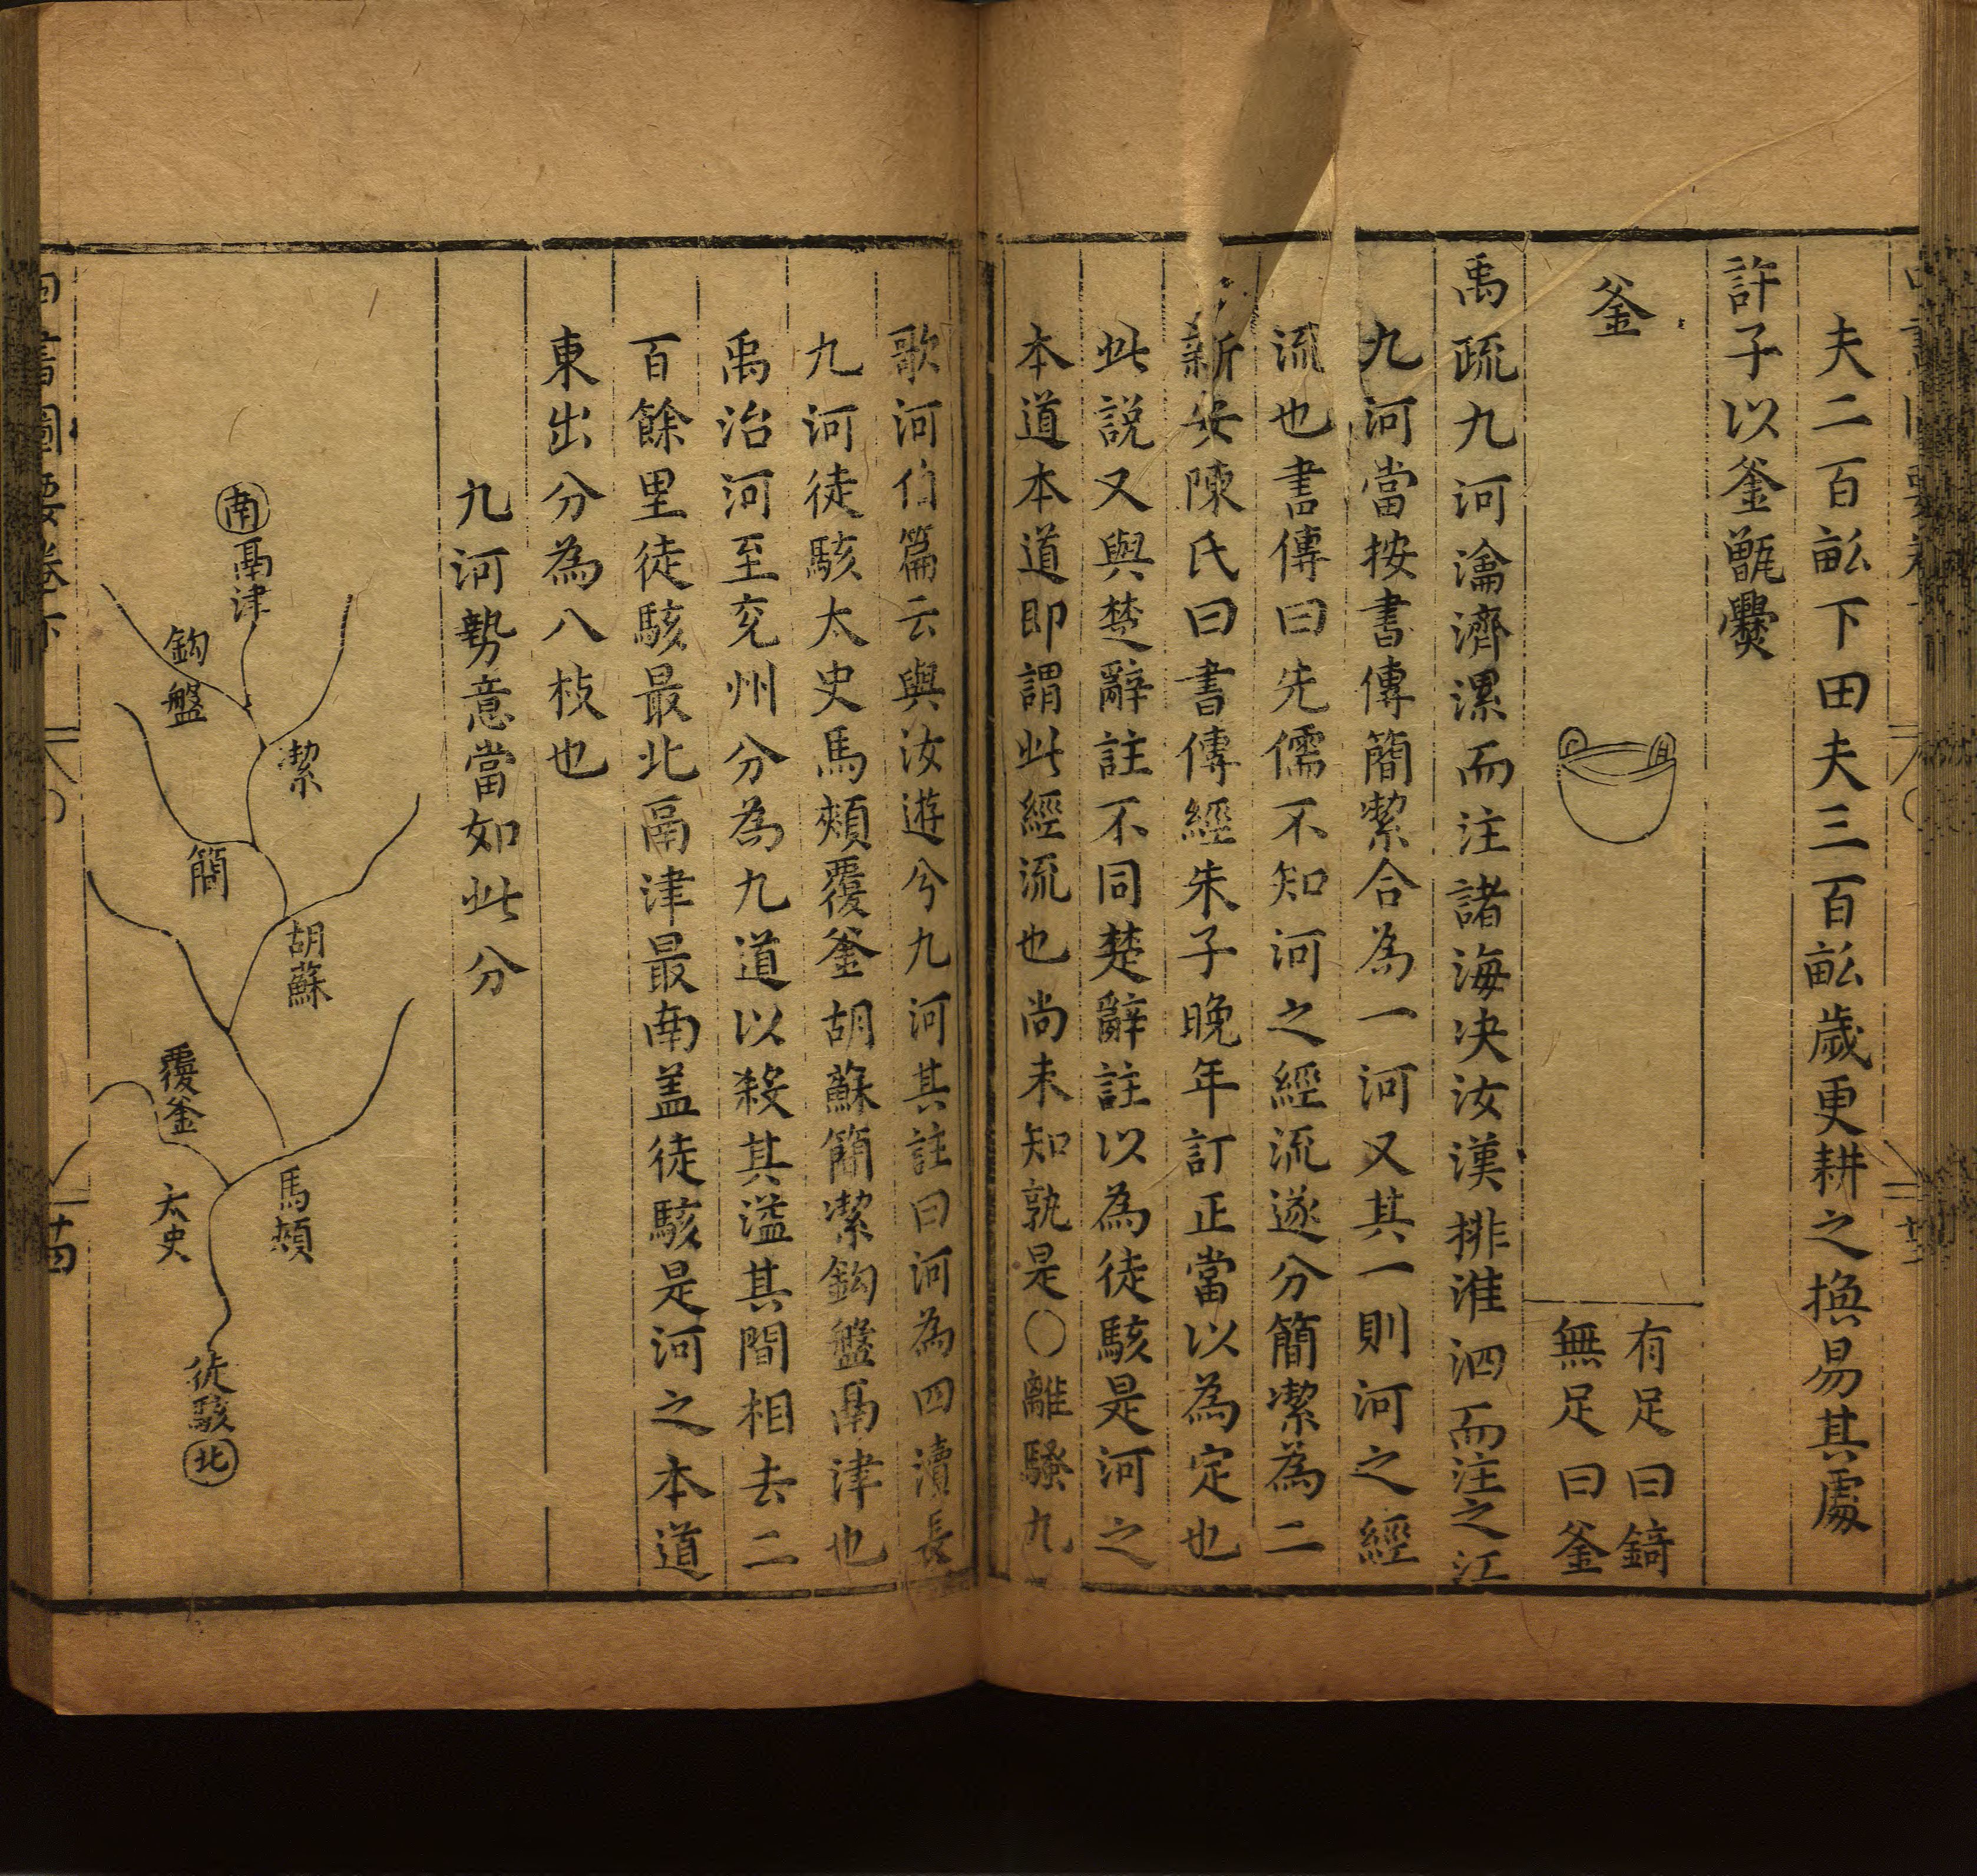 夫二百畝下田夫三百畝歲更耕之換易其處
許子以釜甑爨
釜
有足曰錡
無足曰釜
禹疏九河瀹濟漯而注諸海决汝漢排淮泗而注之江
九河當按書傳簡潔合為一河又其一則河之經
流也書傳曰先儒不知河之經流遂分簡潔為二
新安陳氏曰書傳經朱子晚年訂正當以為定也
此説又與楚辭註不同楚辭註以為徒駭是河之
本道本道即謂此經流也尚未知孰是〇離騷九
歌河伯篇云與汝遊兮九河其註曰河為四瀆長
九河徒駭太史馬頰覆釜胡蘇簡潔鈎盤鬲津也
禹治河至兖州分為九道以殺其溢其間相去二
百餘里徒駭最北鬲津最南盖徒駭是河之本道
東出分為八枝也
九河勢意當如此分
南
鬲津
鈎盤
潔
簡
胡蘇
覆釜
馬頰
太史
徒駭
北
四書圖要卷下